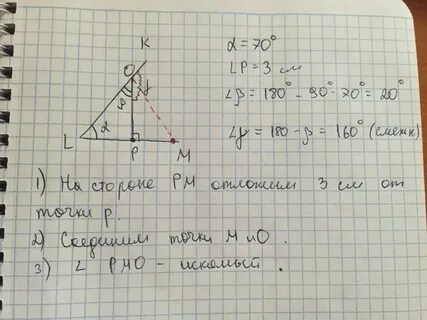 K
O
β
γ
L
α
P
M
α = 70°
LP = 3 см
∠β = 180° - 90° - 70° = 20°
∠γ = 180 - β = 160° (смежн)
1) На стороне PM отложим 3 см от
точки p.
2) Соединим точки M и O.
3) ∠ PMO - искомый.